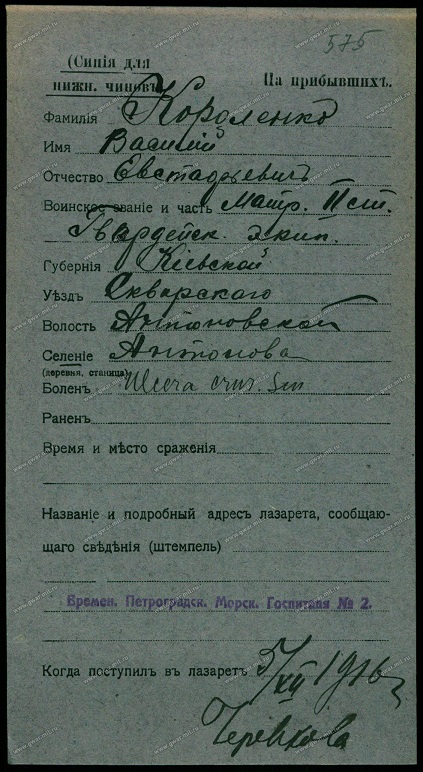 575
(Синія для
нижн. чиновъ
На прибывшихъ.
Фамилія Короленко
Имя Василій
Отчество Евстафьевичъ
Воинское званіе и часть Матр. II ст.
Гвардейск. экип.
Губернія Кіевской
Уѣздъ Сквирского
Волость Антоновской
Селеніе Антонова
(деревня, станица)
Боленъ Ulcera crur. Sin
Раненъ
Время и мѣсто сраженія
Названіе и подробный адресъ лазарета, сообщаю-
щаго свѣдѣнія (штемпель)
Времен. Петроградск. Морск. Госпиталя № 2.
Когда поступилъ въ лазаретъ 5/XII 1916 г
Черевкова
www.gwar.mil.ru